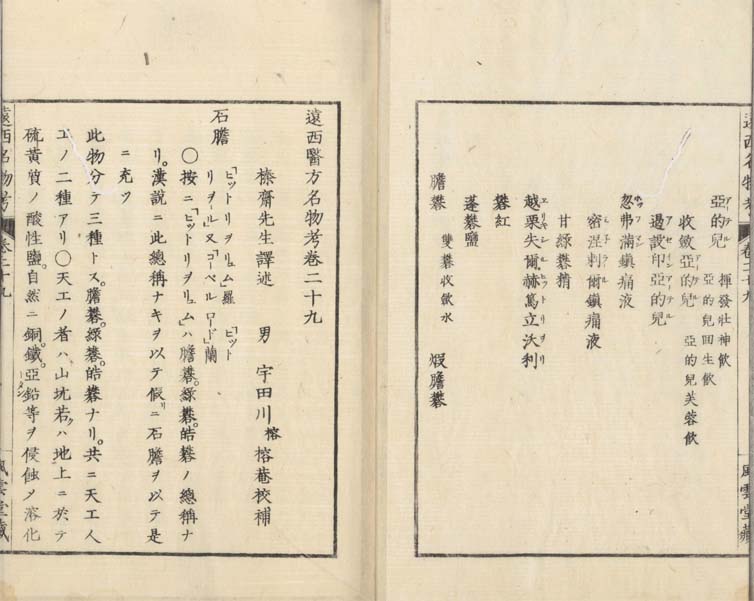 亞的兒 揮發壯神飲
アーテル
亞的兒回生飲
收斂亞的兒 亞的兒芙蓉飲
アーテル
遏設印亞的兒
忽弗滿鎮痛液
ホフマン
密涅剌爾鎮痛液
ミネラール
甘綠礬精
越栗失爾赫篤立沃利
エリキシルヒットリヲリ
礬紅
蓬礬鹽
膽礬 雙礬收斂水 煅膽礬
遠西名物考
卷二十九
風雲堂藏
遠西醫方名物考卷二十九
榛齋先生譯述 男 宇田川 榕 榕菴校補
石膽
「ヒットリヲリュム」羅「ヒット
リヲール」又「コーペルロード」蘭
〇按ニ「ヒットリヲリュム」ハ膽礬。綠礬。皓礬ノ總稱ナ
リ。漢說ニ此總稱ナキヲ以テ假リニ石膽ヲ以テ是
ニ充ツ
此物分テ三種トス。膽礬。綠礬。皓礬ナリ。共ニ天工人
工ノ二種アリ〇天工ノ者ハ山坑若クハ地上ニ於テ
硫黃質ノ酸性鹽。自然ニ銅。鐵。亞鉛等ヲ侵蝕メ溶化
遠西名物考
卷二十九
風雲堂藏